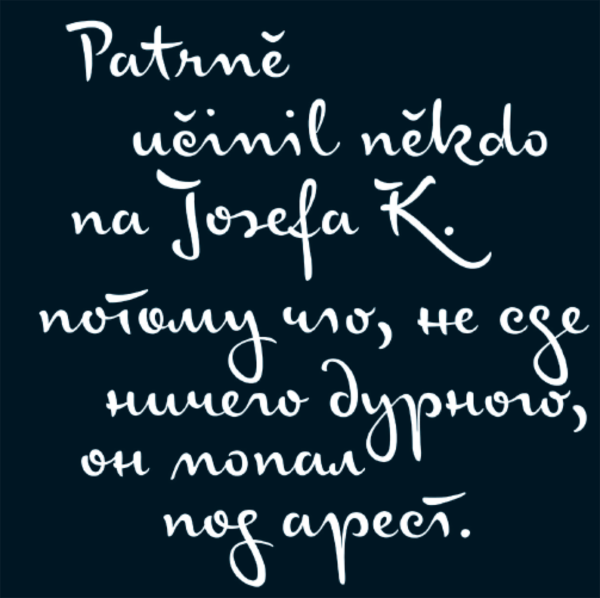 Patrně
učinil někdo
na Josefa K.
потому что, не сде
ничего дурного,
он попал
под арест.